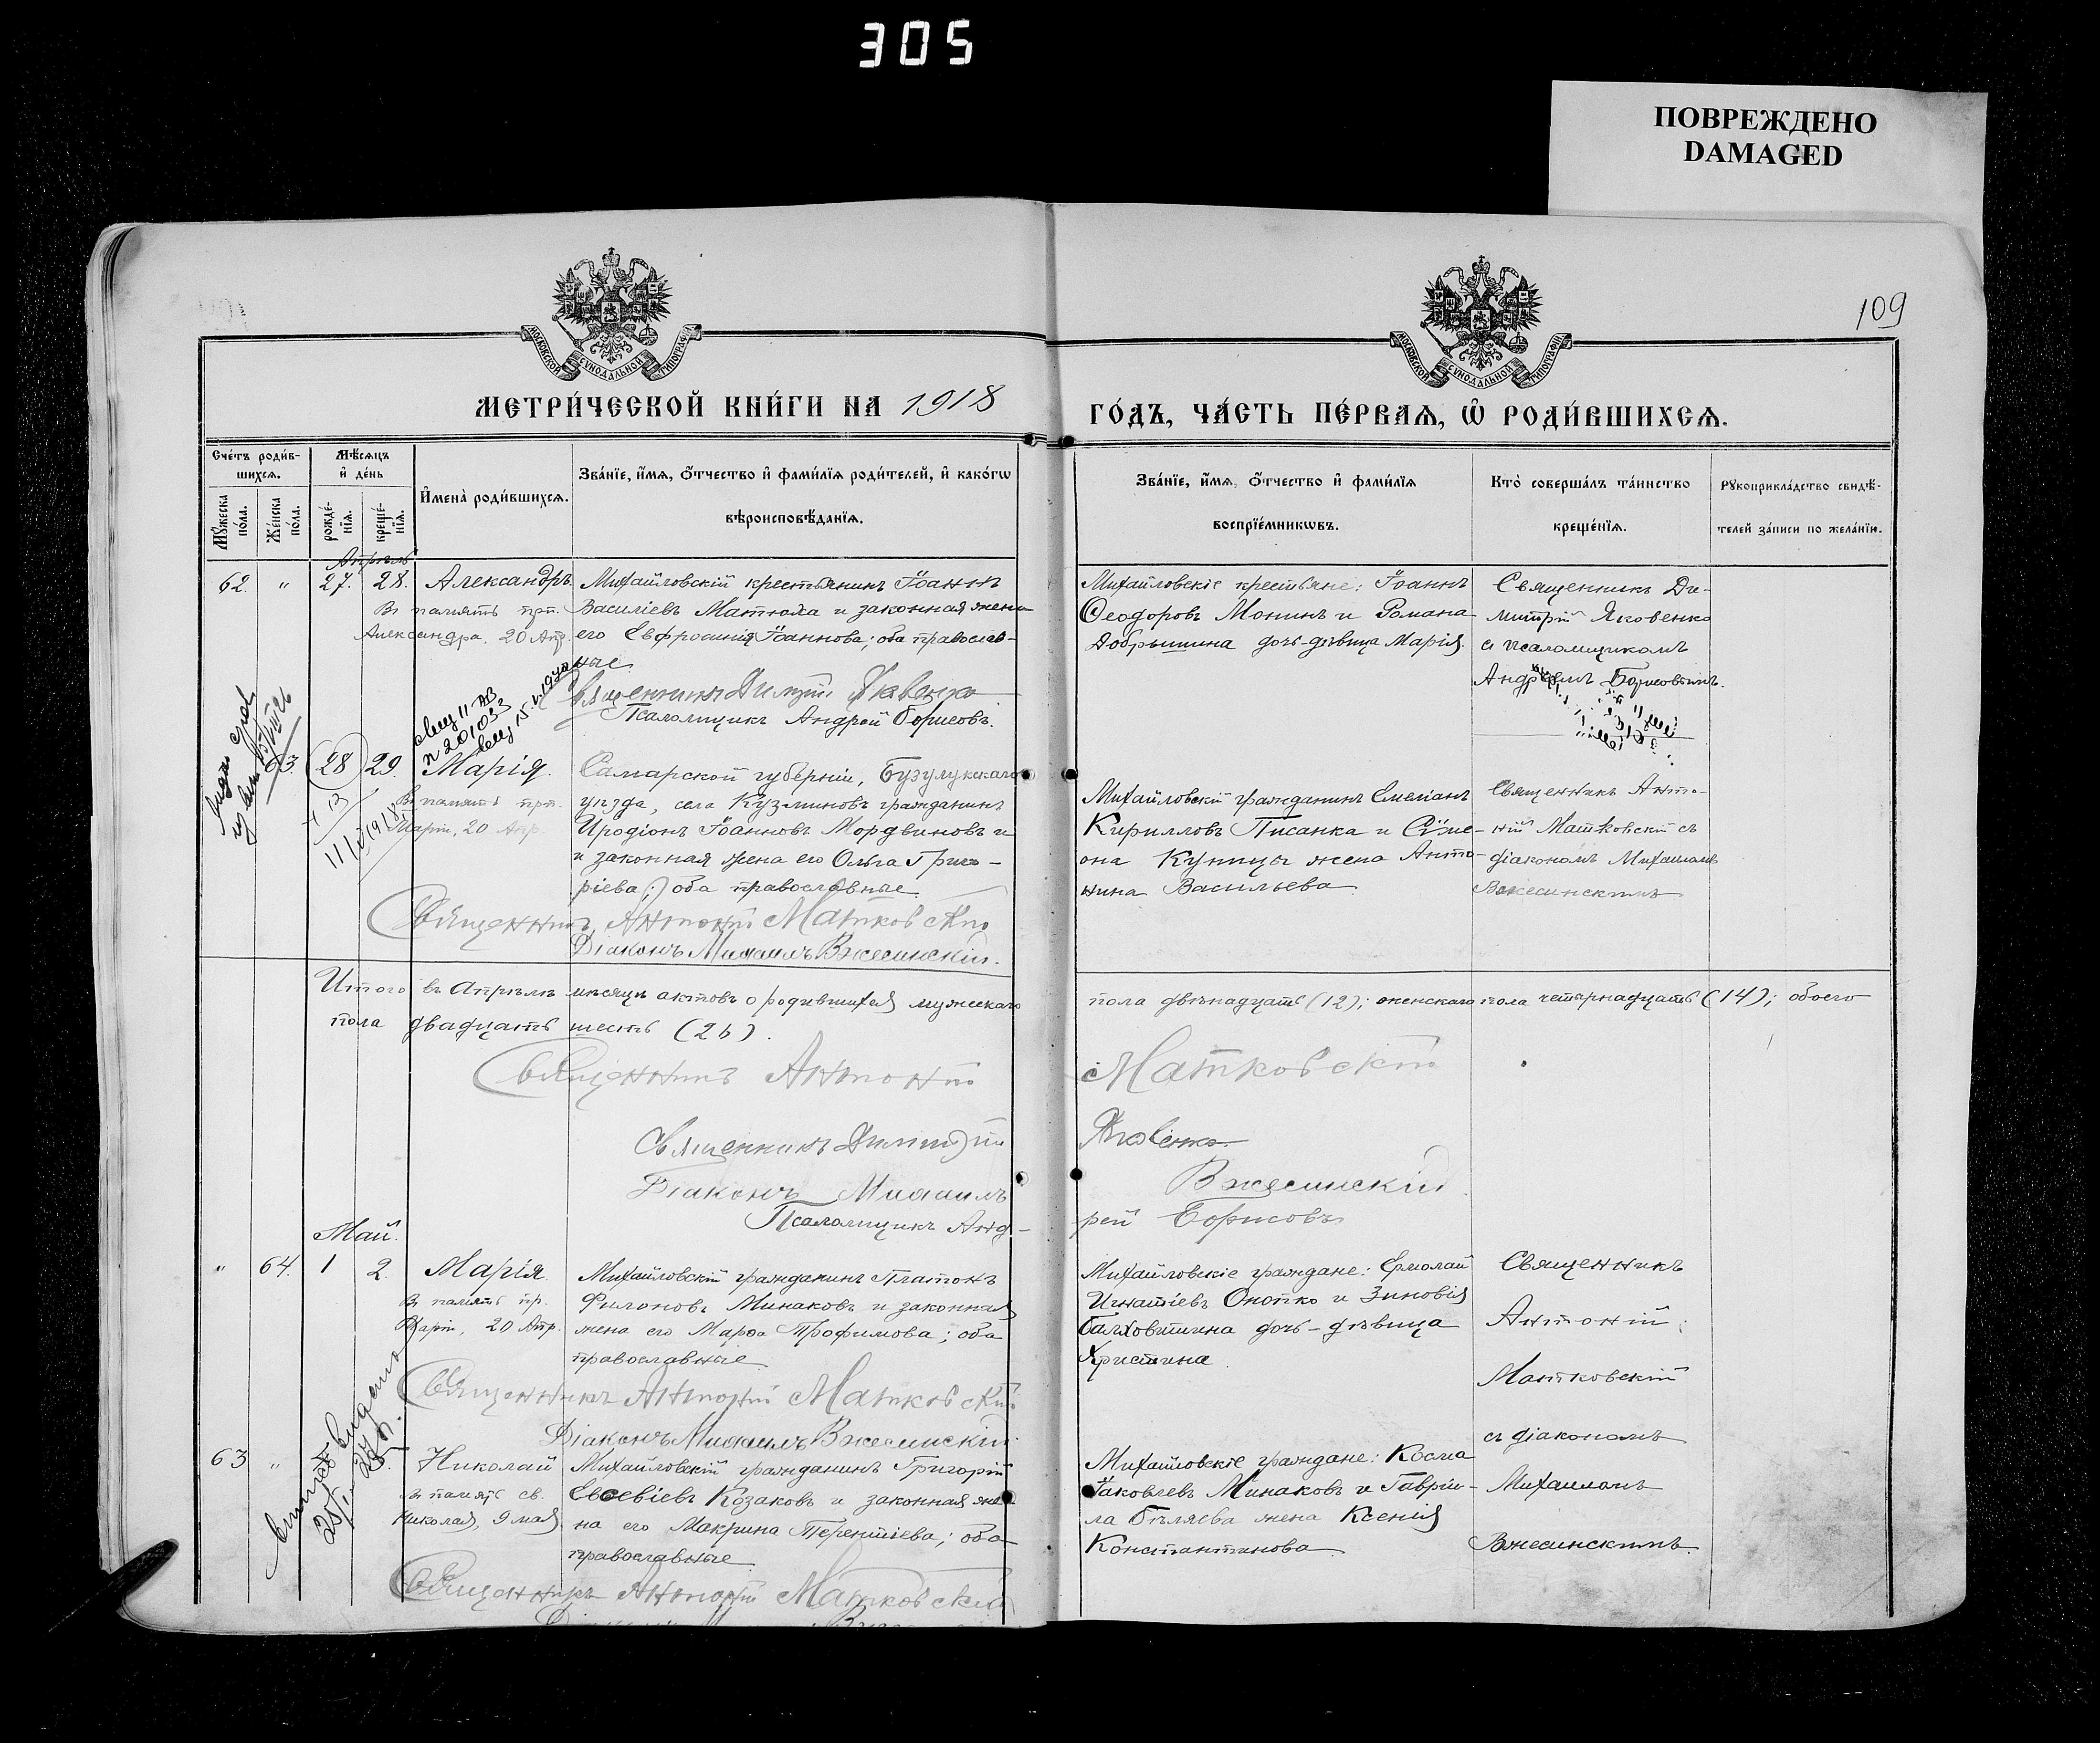 305
ПОВРЕЖДЕНО
DAMAGED
109
МОСКОВСКОЙ СѴНОДАЛЬНОЙ ТИПОГРАФІИ
МОСКОВСКОЙ СѴНОДАЛЬНОЙ ТИПОГРАФІИ
МЕТРИ́ЧЕСКОЙ КНИ́ГИ НА 1918
ГО́ДЪ, ЧА́СТЬ ПЕ́РВАѦ, Ѡ҆ РОДИ́ВШИХСѦ.
Сче́тъ роди́в-
шихсѧ.
Мꙋ́жеска по́ла.
Же́нска по́ла.
Мѣ́сѧцъ
и҆ де́нь
рожде́-
нїѧ.
креще́-
нїѧ.
И҆мена̀ роди́вшихсѧ.
Зва́нїе, и҆́мѧ, ѻ҆́тчество и҆ фами́лїѧ роди́телей, и҆ како́гѡ
вѣроисповѣ́данїѧ.
Зва́нїе, и҆́мѧ, ѻ҆́тчество и҆ фами́лїѧ
воспрїе́мникѡвъ.
Кто̀ соверша́лъ та́инство
креще́нїѧ.
Рꙋкоприкла́дство свидѣ́-
телей за́писи по жела́нїю.
Апрѣль
62. " 27. 28. Александръ.
Въ память прп.
Александра. 20 Апр.
Михайловскій крестьянинъ Іоаннъ
Василіевъ Матюха и законная жена
его Евфросинія Іоаннова; оба православ-
ные
Священникъ Димитрій Яковенко
Псаломщикъ Андрей Борисовъ.
Михайловскіе крестьяне: Іоаннъ
Ѳеодоровъ Монинъ и Романа
Добрышина дочь-дѣвица Марія.
Священникъ Ди-
митрій Яковенко
съ псаломщикомъ
Андреемъ Борисовымъ.
63. 28 29. Марія.
Въ память прп.
Маріи, 20 Апр.
Самарской губерніи, Бузулукскаго
уѣзда, села Кузминовъ гражданинъ
Иродіонъ Іоанновъ Мордвиновъ и
и законная жена его Ольга Григо-
ріева; оба православные
Священникъ Антоній Матковскій
Діаконъ Михаилъ Вжесинскій.
Михайловскій гражданинъ Емеліанъ
Кирилловъ Писанка и Сѵме-
она Куницы жена Анто-
нина Васильева
Священникъ Анто-
ній Матковскій съ
діакономъ Михаиломъ
Вжесинскимъ
Итого въ Апрѣлѣ мѣсяцѣ актовъ о родившихся мужскаго
пола двѣнадцать (12); женскаго пола четырнадцать (14); обоего
пола двадцать шесть (26).
Священникъ Антоній Матковскій
Священникъ Димитрій Яковенко
Діаконъ Михаилъ Вжесинскій
Псаломщикъ Анд-
рей Борисовъ
Май.
" 64. 1 2. Марія
Въ память пр.
Маріи, 20 Апр.
Михайловскій гражданинъ Платонъ
Филоновъ Минаковъ и законная
жена его Марѳа Трофимова; оба
православные
Священникъ Антоній Матковскій
Діаконъ Михаилъ Вжесинскій
Михайловскіе граждане: Ермолай
Игнатіевъ Онопко и Зиновія
дочь-дѣвица
Христина
Священникъ
Антоній
Матковскій
съ діакономъ
Михаиломъ
Вжесинскимъ.
63 " Николай
Въ память св.
Николая, 9 мая
Михайловскій гражданинъ Григорій
Евсевіевъ Козаковъ и законная же-
на его Макрина Терентіева; оба
православные
Священникъ Антоній Матковскій
Михайловскіе граждане: Косма
Іаковлевъ Минаковъ и Гаврі-
ла Бѣляева жена Ксенія
Константинова